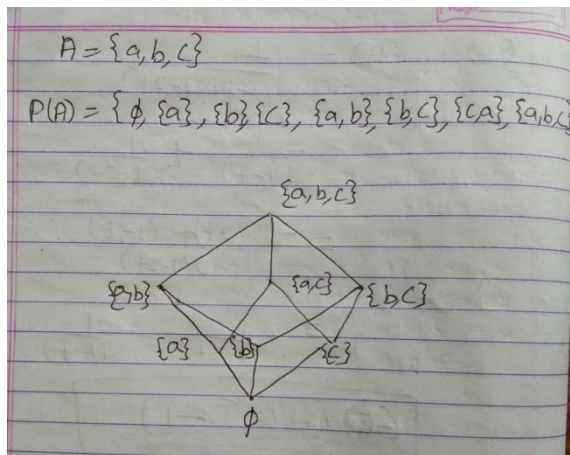 A = {a,b,c}
P(A) = {ϕ, {a}, {b} {c}, {a,b}, {b,c}, {c,a}, {a,b,c}
{a,b,c}
{a,b} {a,c} {b,c}
{a} {b} {c}
ϕ